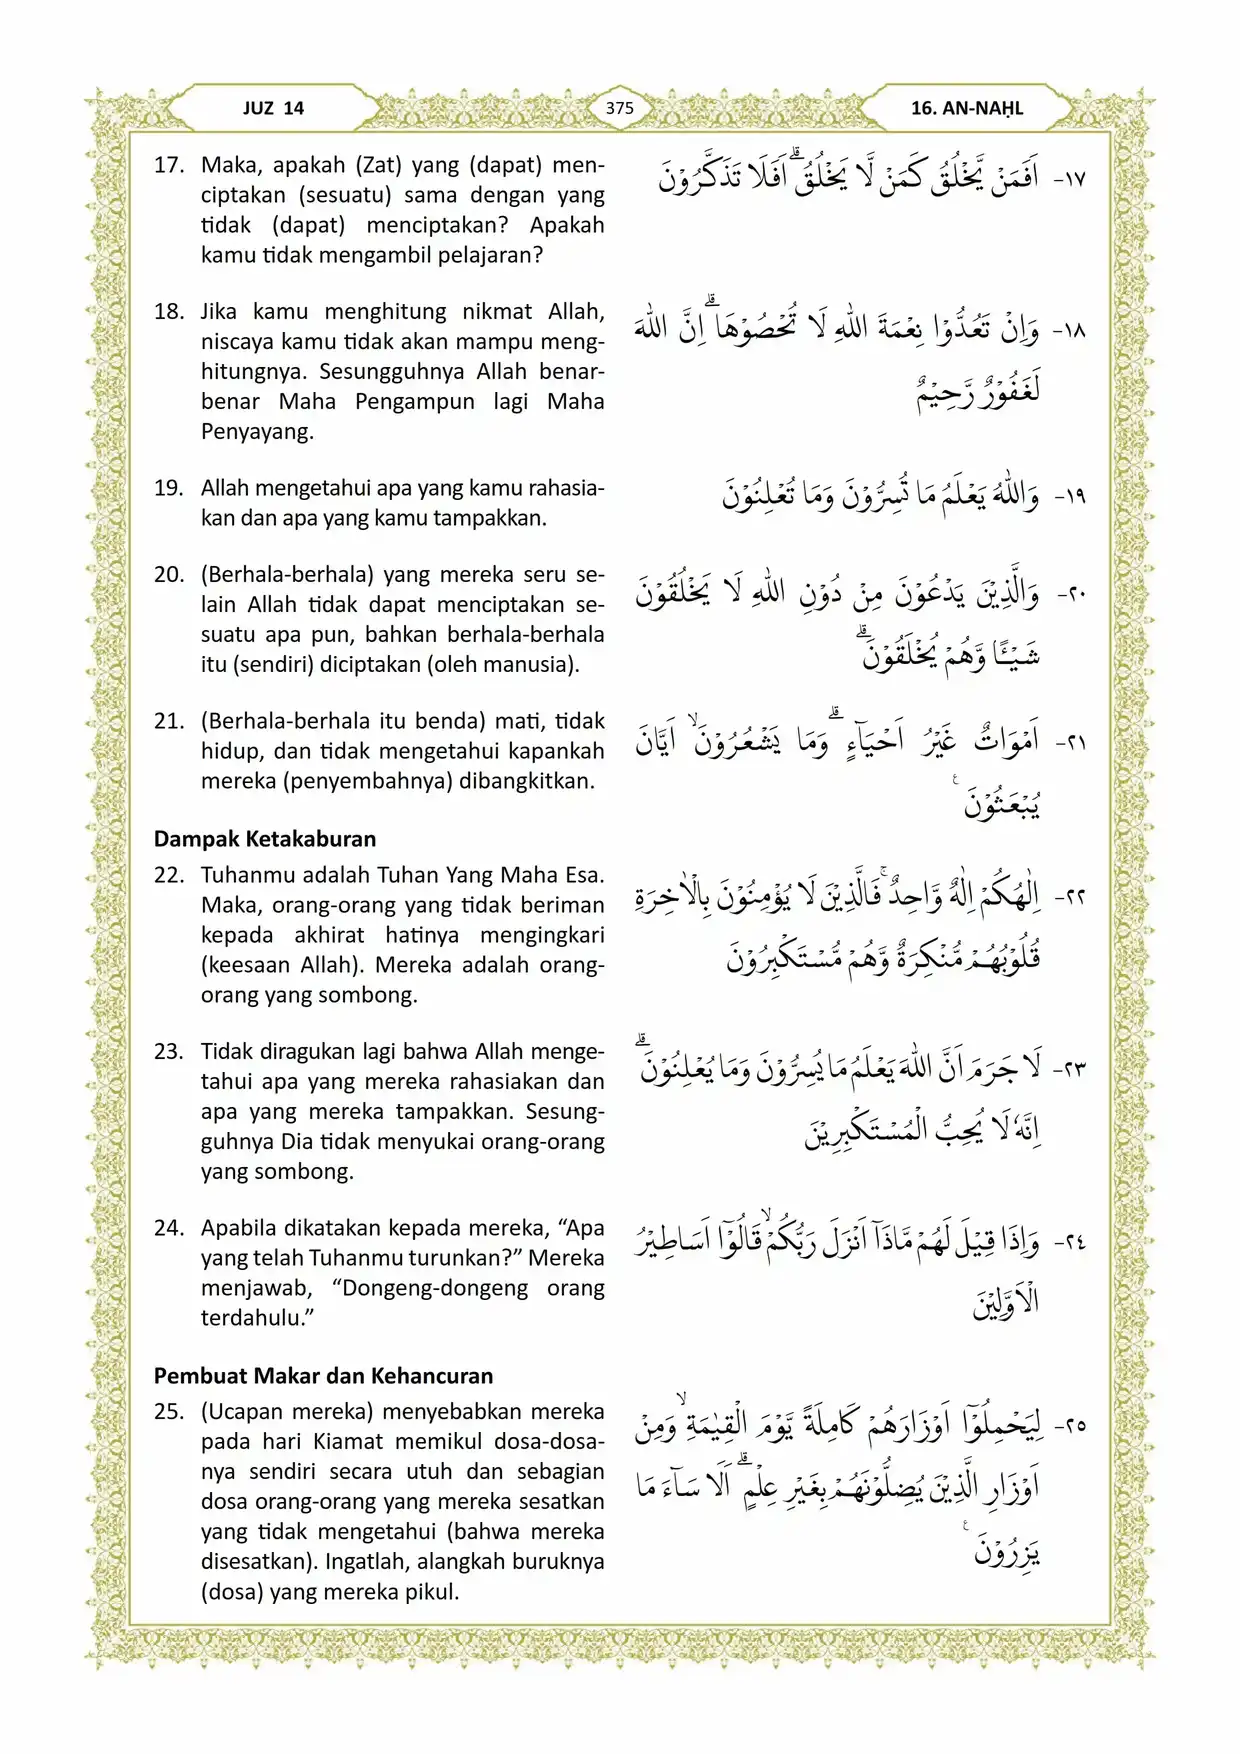 JUZ 14
375
16. AN-NAḤL
17. Maka, apakah (Zat) yang (dapat) men-
ciptakan (sesuatu) sama dengan yang
tidak (dapat) menciptakan? Apakah
kamu tidak mengambil pelajaran?
١٧- اَفَمَنْ يَّخْلُقُ كَمَنْ لَّا يَخْلُقُۗ اَفَلَا تَذَكَّرُوْنَ
18. Jika kamu menghitung nikmat Allah,
niscaya kamu tidak akan mampu meng-
hitungnya. Sesungguhnya Allah benar-
benar Maha Pengampun lagi Maha
Penyayang.
١٨- وَاِنْ تَعُدُّوْا نِعْمَةَ اللّٰهِ لَا تُحْصُوْهَاۗ اِنَّ اللّٰهَ
لَغَفُوْرٌ رَّحِيْمٌ
19. Allah mengetahui apa yang kamu rahasia-
kan dan apa yang kamu tampakkan.
١٩- وَاللّٰهُ يَعْلَمُ مَا تُسِرُّوْنَ وَمَا تُعْلِنُوْنَ
20. (Berhala-berhala) yang mereka seru se-
lain Allah tidak dapat menciptakan se-
suatu apa pun, bahkan berhala-berhala
itu (sendiri) diciptakan (oleh manusia).
٢٠- وَالَّذِيْنَ يَدْعُوْنَ مِنْ دُوْنِ اللّٰهِ لَا يَخْلُقُوْنَ
شَيْـًٔا وَّهُمْ يُخْلَقُوْنَۗ
21. (Berhala-berhala itu benda) mati, tidak
hidup, dan tidak mengetahui kapankah
mereka (penyembahnya) dibangkitkan.
٢١- اَمْوَاتٌ غَيْرُ اَحْيَاۤءٍۗ وَمَا يَشْعُرُوْنَۙ اَيَّانَ
يُبْعَثُوْنَ ࣖ
Dampak Ketakaburan
22. Tuhanmu adalah Tuhan Yang Maha Esa.
Maka, orang-orang yang tidak beriman
kepada akhirat hatinya mengingkari
(keesaan Allah). Mereka adalah orang-
orang yang sombong.
٢٢- اِلٰهُكُمْ اِلٰهٌ وَّاحِدٌۚ فَالَّذِيْنَ لَا يُؤْمِنُوْنَ بِالْاٰخِرَةِ
قُلُوْبُهُمْ مُّنْكِرَةٌ وَّهُمْ مُّسْتَكْبِرُوْنَ
23. Tidak diragukan lagi bahwa Allah menge-
tahui apa yang mereka rahasiakan dan
apa yang mereka tampakkan. Sesung-
guhnya Dia tidak menyukai orang-orang
yang sombong.
٢٣- لَا جَرَمَ اَنَّ اللّٰهَ يَعْلَمُ مَا يُسِرُّوْنَ وَمَا يُعْلِنُوْنَۗ
اِنَّهٗ لَا يُحِبُّ الْمُسْتَكْبِرِيْنَ
24. Apabila dikatakan kepada mereka, “Apa
yang telah Tuhanmu turunkan?” Mereka
menjawab, “Dongeng-dongeng orang
terdahulu.”
٢٤- وَاِذَا قِيْلَ لَهُمْ مَّاذَآ اَنْزَلَ رَبُّكُمْۙ قَالُوْٓا اَسَاطِيْرُ
الْاَوَّلِيْنَ
Pembuat Makar dan Kehancuran
25. (Ucapan mereka) menyebabkan mereka
pada hari Kiamat memikul dosa-dosa-
nya sendiri secara utuh dan sebagian
dosa orang-orang yang mereka sesatkan
yang tidak mengetahui (bahwa mereka
disesatkan). Ingatlah, alangkah buruknya
(dosa) yang mereka pikul.
٢٥- لِيَحْمِلُوْٓا اَوْزَارَهُمْ كَامِلَةً يَّوْمَ الْقِيٰمَةِۙ وَمِنْ
اَوْزَارِ الَّذِيْنَ يُضِلُّوْنَهُمْ بِغَيْرِ عِلْمٍۗ اَلَا سَاۤءَ مَا
يَزِرُوْنَ ࣖ